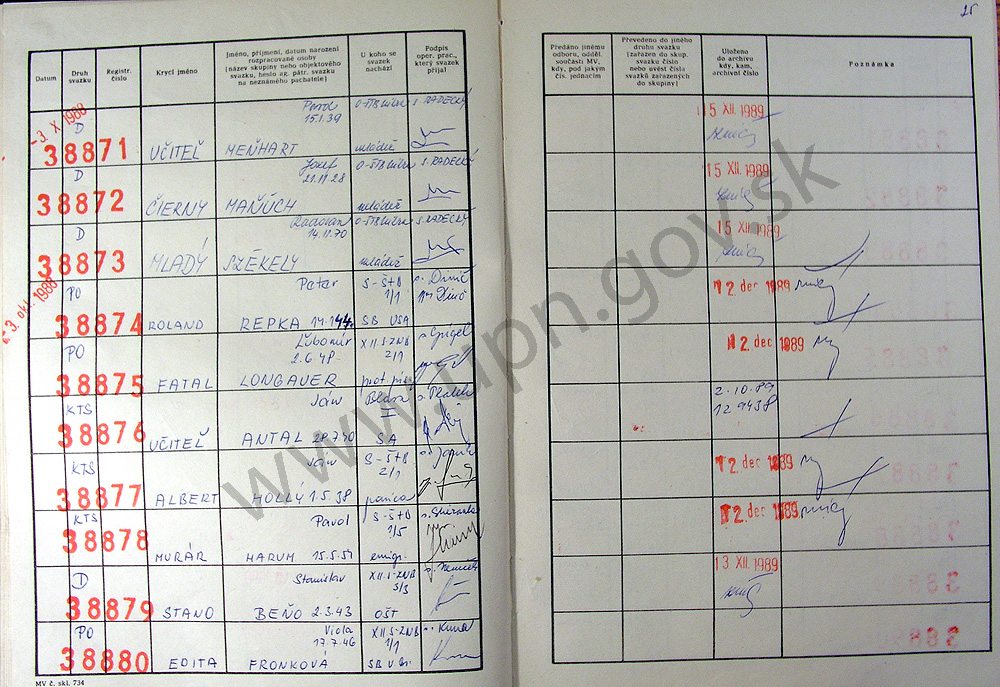 25
Datum
Druh svazku
Registr. číslo
Krycí jméno
Jméno, příjmení, datum narození
rozpracované osoby
(název skupiny nebo objektového
svazku, heslo ag. pátr. svazku
na neznámého pachatele)
U koho se
svazek
nachází
Podpis
oper. prac.,
který svazek
přijal
Předáno jinému
odboru, odděl.
součásti MV,
kdy, pod jakým
čís. jednacím
Převedeno do jiného
druhu svazku
(zařazen do skup.
svazku číslo
nebo uvést čísla
svazků zařazených
do skupiny)
Uloženo
do archivu
kdy, kam,
archivní číslo
Poznámka
-3. X 1988
D
15.1.39
s. RADECKÝ
15 XII. 1989
38871 UČITEĽ MEŇHART mládež
D
Jozef
21.11.28
s. RADECKÝ
15 XII. 1989
38872 ČIERNY MAŇÚCH mládež
D
Radovan
14.11.70
s. RADECKÝ
15 XII. 1989
38873 MLADÝ SZÉKELY mládež
-3. okt. 1988
PO
Peter
S-ŠtB
1/1
12. dec 1989
38874 ROLAND REPKA SB USA
PO
Ľubomír
2.6.48
XII.S-ZNB
2/1
12. dec 1989
38875 FATAL LONGAUER
KTS
Ján
II
2.10.89
129438
38876 UČITEĽ ANTAL SA
KTS
Ján
S-ŠtB
2/1
12. dec 1989
38877 ALBERT HOLLÝ 1.5.38
KTS
Pavol
S-ŠtB
1/5
12. dec 1989
38878 MURÁR HARUM 15.5.51 emigr.
D
Stanislav
XII.S-ZNB
5/3
13 XII. 1989
38879 STANO BEŇO 2.3.43 OŠT
PO
Viola
17.7.46
XII.S-ZNB
1/1
38880 EDITA FRONKOVÁ
MV č. skl. 734
www.upn.gov.sk